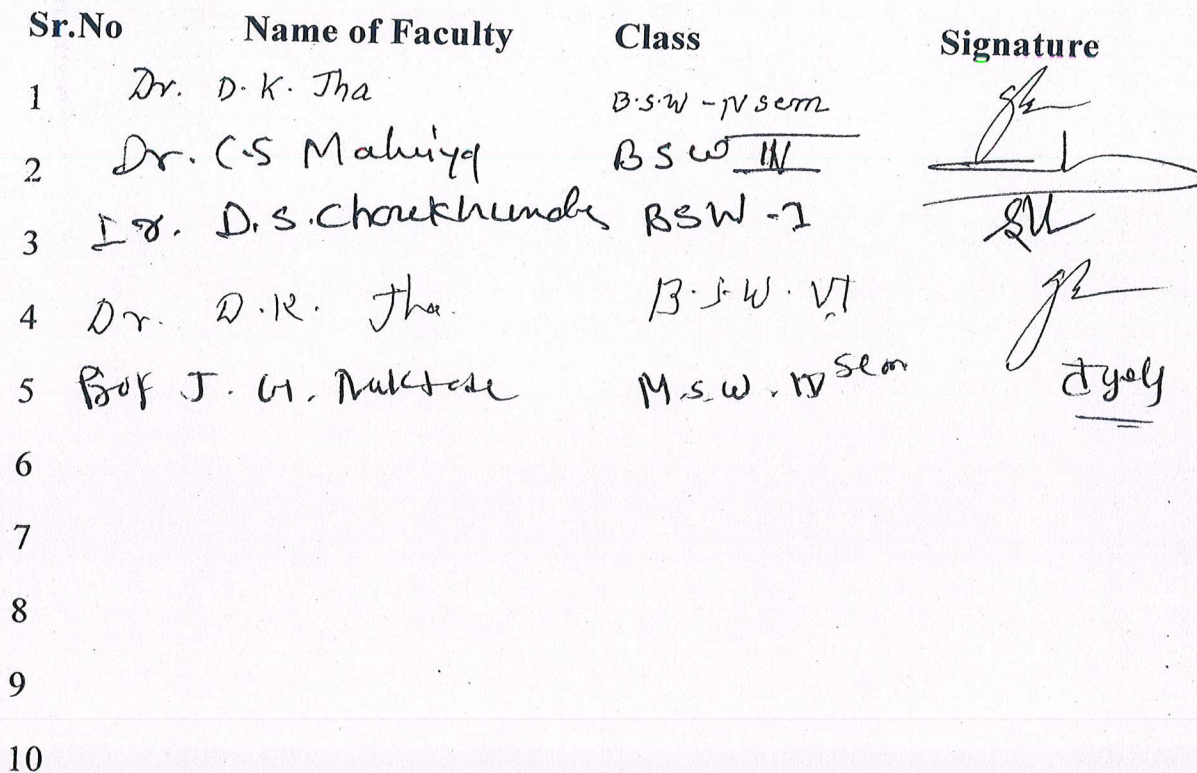 Sr.No Name of Faculty Class Signature
1 Dr. D. K. Jha B.S.W - IV sem
2 Dr. C.S BSW IV
3 Dr. D.S. Chourkhunde BSW - I
4 Dr. D.K. Jha. B.S.W. VI
5 Prof J. G. M.S.W. IV Sem
6
7
8
9
10